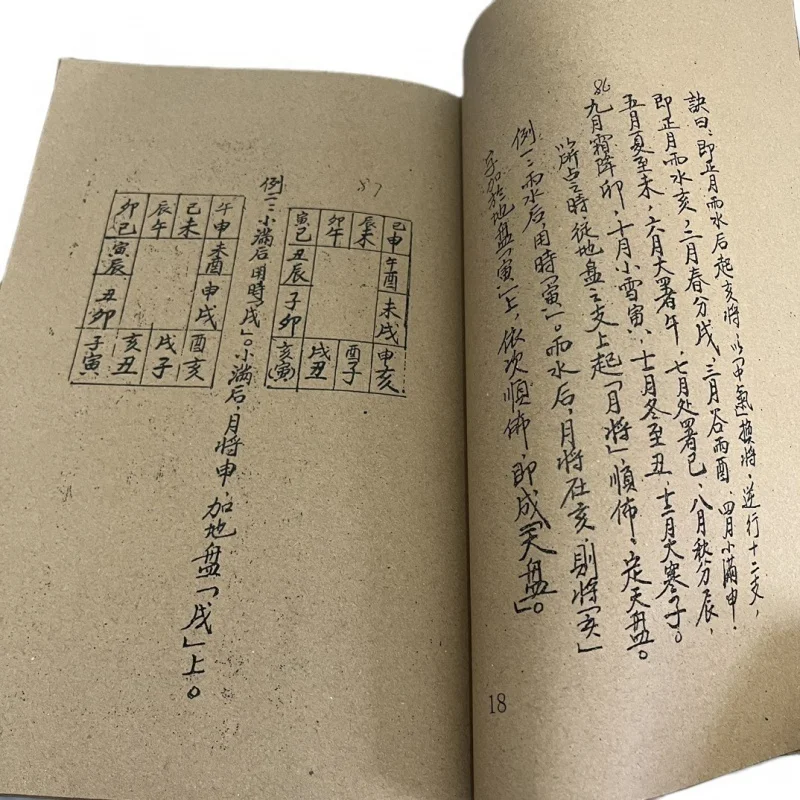 訣曰：即正月雨水后起亥將，以「中氣」換將，逆行十二支，
即正月雨水亥，二月春分戌，三月谷雨酉，四月小滿申，
五月夏至未，六月大署午，七月处署巳，八月秋分辰，
九月霜降卯，十月小雪寅，十一月冬至丑，十二月大寒子。
86
以所占之時從地盘之支上起「月將」順佈，定天盘。
例一：雨水后，用時「寅」。雨水后，月將在亥，則將「亥」
加於地盘「寅」上，依次順佈，即成「天盘」。
18
87
寅巳 卯午 辰未 巳申
丑辰 午酉
子卯 未戌
亥寅 戌丑 酉子 申亥
例二：小滿后，用時「戌」。小滿后，月將申，加地盘「戌」上。
卯巳 辰午 巳未 午申
寅辰 未酉
丑卯 申戌
子寅 亥丑 戌子 酉亥